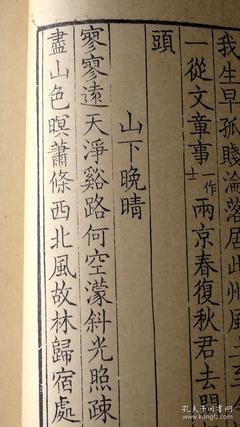 我生早孤賤淪落居此州風土至今
一從文章事一作士兩京春復秋君去問
頭
山下晚晴
寥寥遠天淨谿路何空濛斜光照疎
盡山色暝蕭條西北風故林歸宿處
孔夫子旧书网